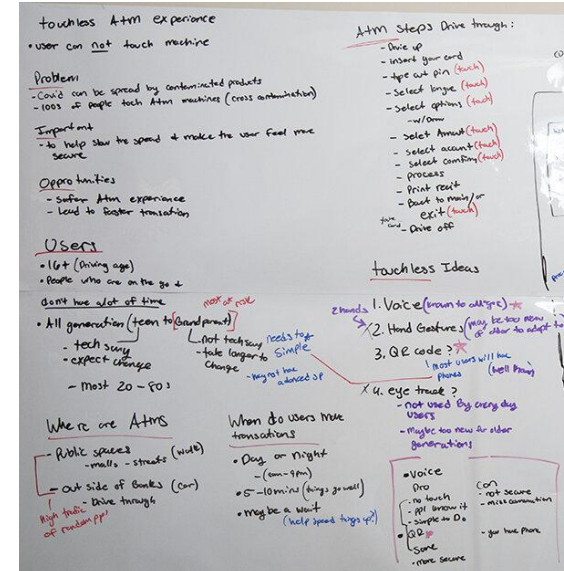 touchless Atm experience
• user can not touch machine
Problem
- Covid can be spread by contaminated products
- 100s of people toch Atm machines (cross contamination)
Important
- to help slow the spread & make the user feel more
secure
Oppro tunities
- Safer Atm experience
- Lead to faster transation
Users
• 16+ (Driving age)
• People who are on the go &
don't have alot of time
most at risk
• All generation (teen to Grandparent)
- tech savy
• expect change
- most 20 - 80s
- not tech savy
- take longer to
change
needs to be
Simple
- may not have
advanced sp
Where are Atms
- Public spaces
- malls - streets (walk)
- out side of Banks (car)
- Drive through
High trafic
of random ppl
When do users make
transations
• Day or night
• 5-10 mins (things go well)
• maybe a wait
(help speed things up?)
Atm Steps Drive through:
- Drive up
- Insert your card
- type out pin (touch)
- Select (touch)
- Select options (touch)
- Select Amount (touch)
- select account (touch)
- select (touch)
- process
- Print
- Back to main/or
exit (touch)
take
card
- Drive off
touchless Ideas
2 hands
1. Voice (known to all ages)
X 2. Hand Gestures (may be too new
& older to adapt to
3. QR code?
most users will have
phones
(well known)
X 4. eye track?
- not used By every day
users
- maybe too new for older
generations
• Voice
Pro
- no touch
- ppl know it
- simple to Do
Con
- not secure
- miss
• QR
Same
- more secure
- have phone